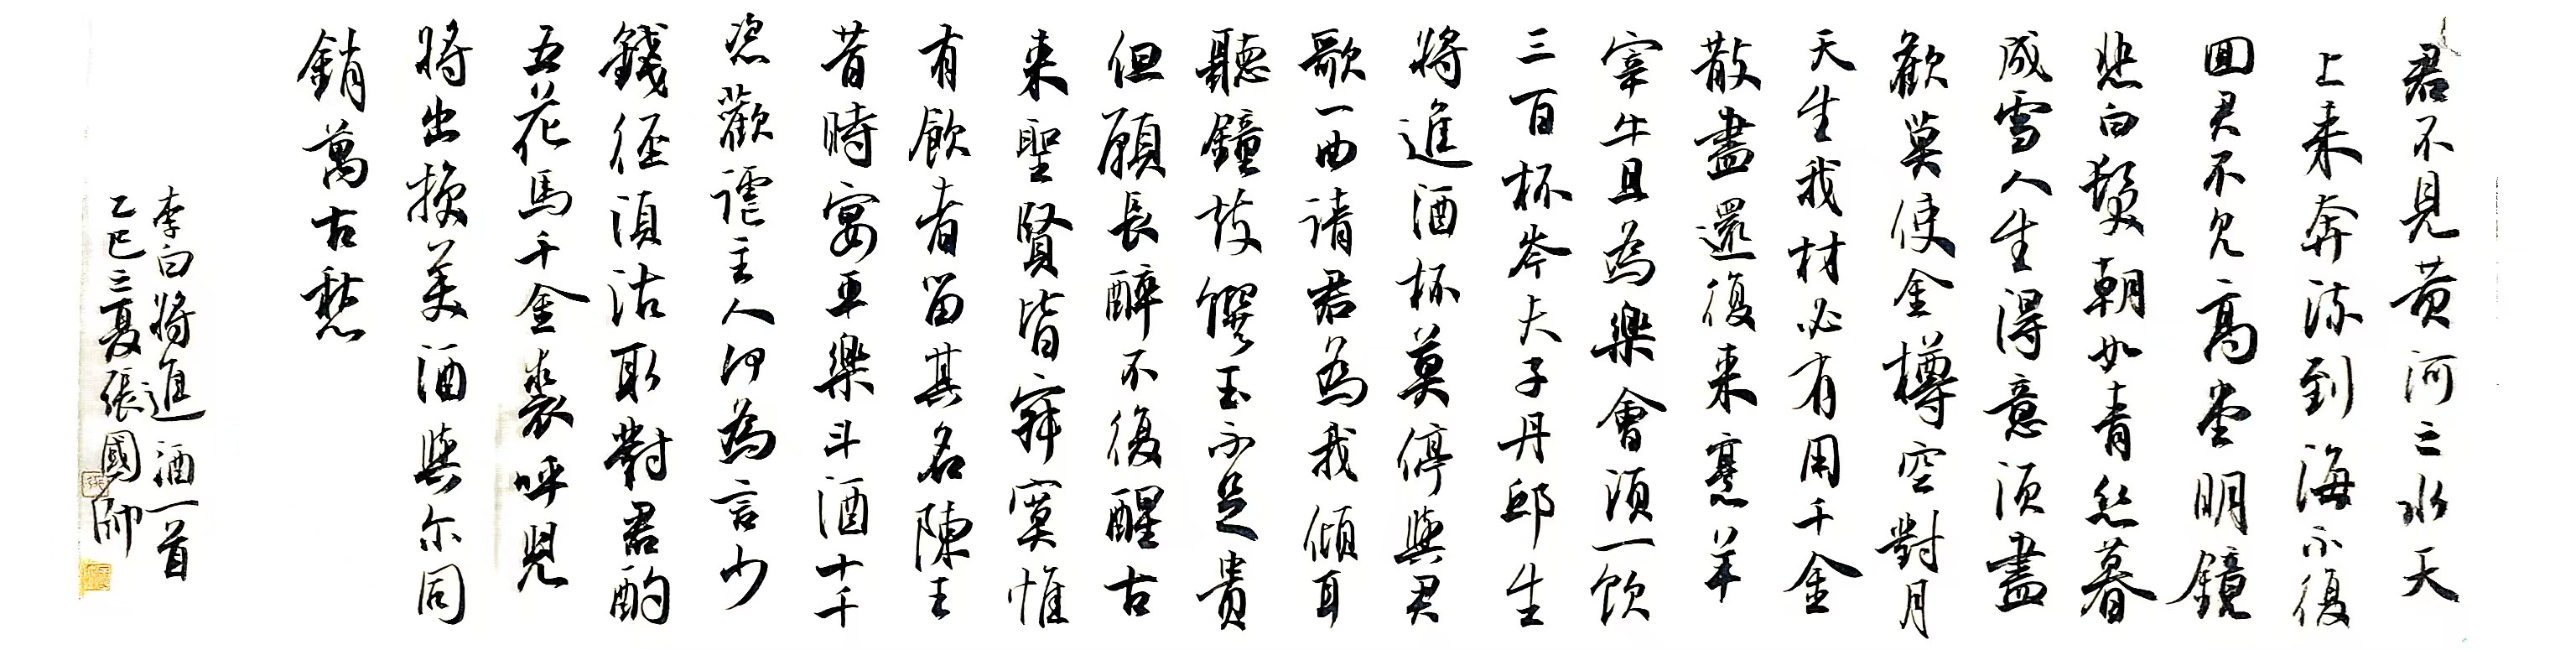 君不見黃河之水天
上来奔流到海不復
回君不見高堂明鏡
悲白髮朝如青絲暮
成雪人生得意須盡
歡莫使金樽空對月
天生我材必有用千金
散盡還復来烹羊
宰牛且為樂會須一飲
三百杯岑夫子丹邱生
將進酒杯莫停與君
歌一曲請君為我傾耳
聽鐘鼓饌玉不足貴
但願長醉不復醒古
来聖賢皆寂寞惟
有飲者留其名陳王
昔時宴平樂斗酒十千
恣歡謔主人何為言少
錢徑須沽取對君酌
五花馬千金裘呼兒
將出換美酒與尔同
銷萬古愁
李白將進酒一首
乙巳之夏張國帥